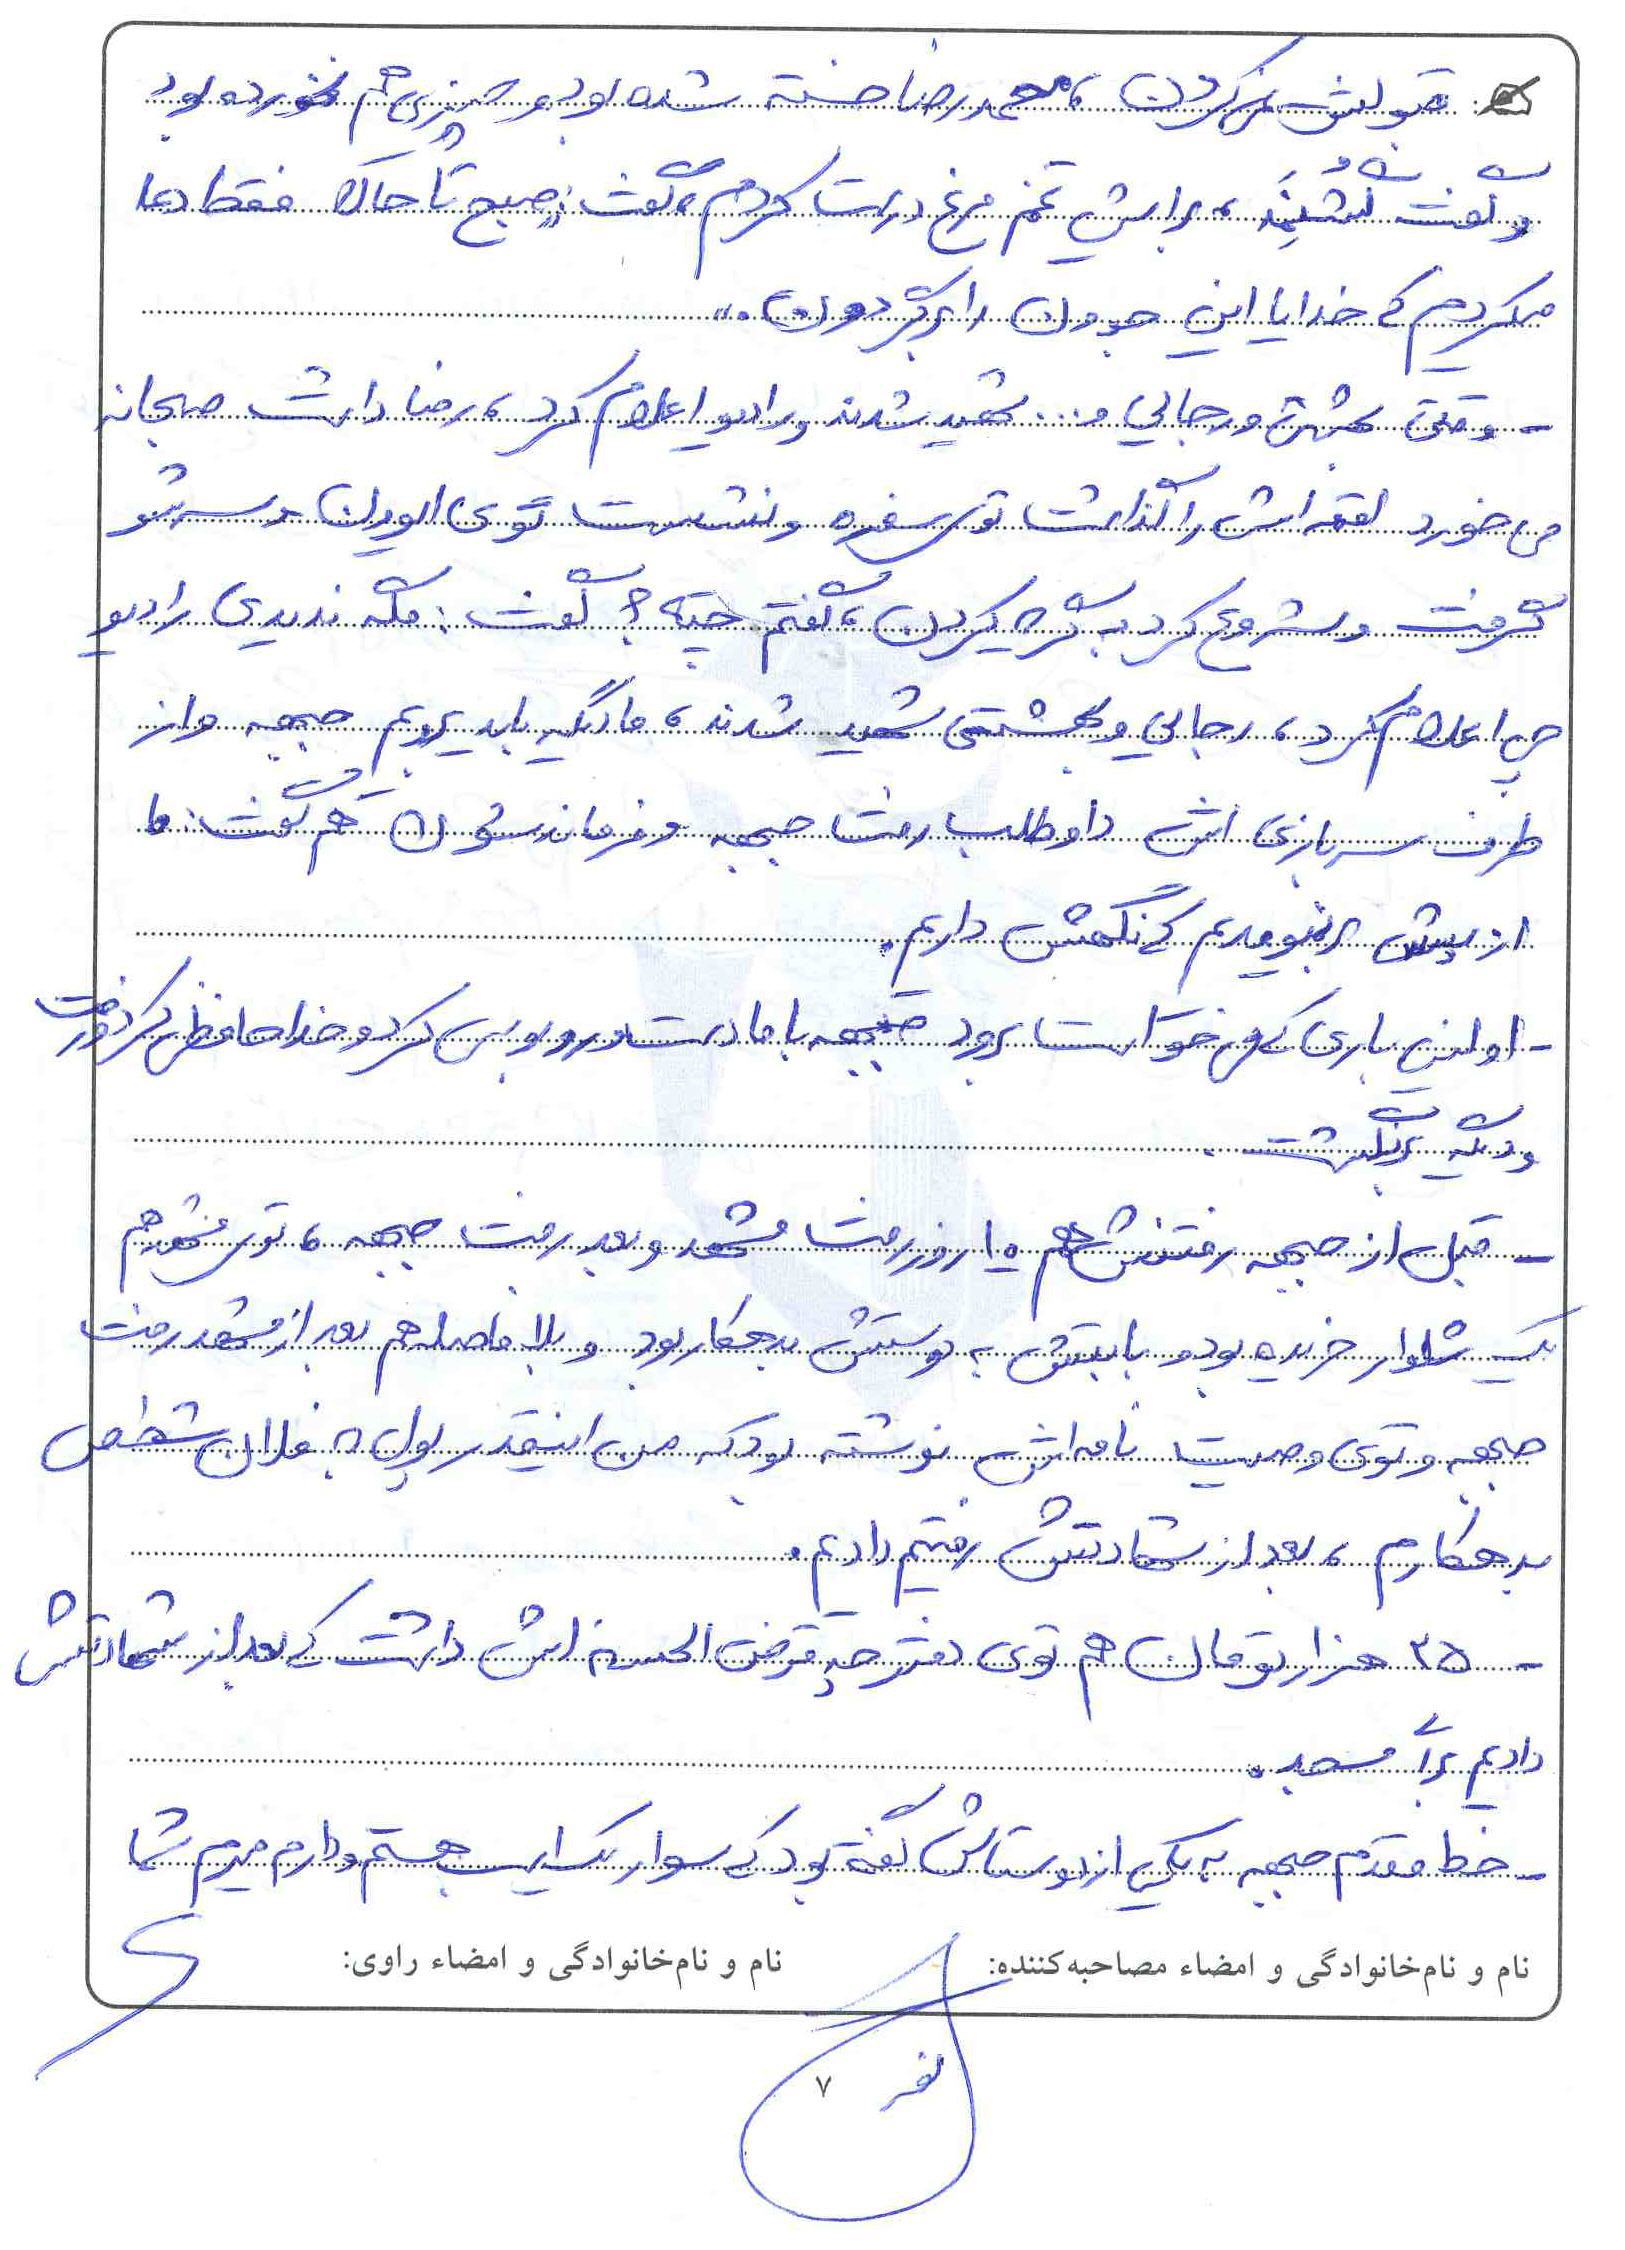 قبولش نمی‌کردن، محمدرضا خسته شده بود و چیزی هم نخورده بود
و گفت گشنمه، برایش تخم مرغ درست کردم، گفت: «صبح تا حالا فقط دعا
میکردم که خدایا این جوون را برگردون.»
- وقتی بهشتی و رجایی و... شهید شدند و رادیو اعلام کرد، رضا داشت صبحانه
می‌خورد لقمه‌اش را گذاشت توی سفره و نشست توی ایوان و سرشو
گرفت و شروع کرد به گریه کردن، گفتم چیته؟ گفت: مگه ندیدی رادیو
چی اعلام کرد، رجایی و بهشتی شهید شدند، ما دیگه باید برویم جبهه و از
طرف سربازی اش داوطلب رفت جبهه و فرمانده شون هم گفت: ما
از پسش برنیومدیم که نگهش داریم.
- اولین باری که می‌خواست برود جبهه با ما دست و روبوسی کرد و خداحافظی کرد و رفت
و دیگه برنگشت.
- قبل از جبهه رفتنش هم ۱۰ روز رفت مشهد و بعد رفت جبهه، توی مشهد هم
یک شلوار خریده بود و بابتش به دوستش بدهکار بود و بلافاصله هم بعد از مشهد رفت
جبهه و توی وصیت نامه‌اش نوشته بود که من اینقدر پول به فلان شخص
بدهکارم، بعد از شهادتش رفتیم دادیم.
- ۳۵ هزار تومان هم توی دفترچه قرض الحسنه اش داشت که بعد از شهادتش
دادیم برا مسجد.
- خط مقدم جبهه به یکی از دوستاش گفته بود که سوار یک اسب هستم و دارم میرم شما
نام و نام‌خانوادگی و امضاء مصاحبه‌کننده:
نام و نام‌خانوادگی و امضاء راوی:
۷